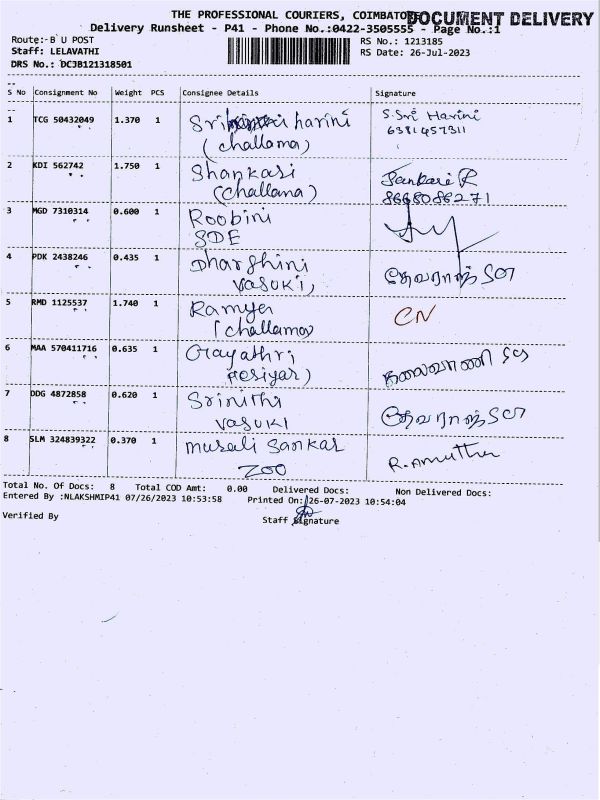 THE PROFESSIONAL COURIERS, COIMBATORE
DOCUMENT DELIVERY
Delivery Runsheet - P41 - Phone No.:0422-3505555 - Page No.:1
Route:-B U POST
RS No.: 1213185
Staff: LELAVATHI
RS Date: 26-Jul-2023
DRS No.: DCJB121318501
S No Consignment No Weight PCS Consignee Details Signature
1 TCG 50432049 1.370 1 Sri harini S. Sri Harini
(challama) 6381457311
2 KDI 562742 1.750 1 Shankari Sankari R
(challama) 8668086271
3 MGD 7310314 0.600 1 Roobini
SDE
4 PDK 2438246 0.435 1 Dharshini
vasuki)
5 RMD 1125537 1.740 1 Ramya CN
(challama)
6 MAA 570411716 0.635 1 Gayathri
7 DDG 4872858 0.620 1 Srinithi
vasuki
8 SLM 324839322 0.370 1 murali Sankar R. Amutha
ZOO
Total No. Of Docs: 8 Total COD Amt: 0.00 Delivered Docs: Non Delivered Docs:
Entered By :NLAKSHMIP41 07/26/2023 10:53:58 Printed On: 26-07-2023 10:54:04
Verified By
Staff Signature